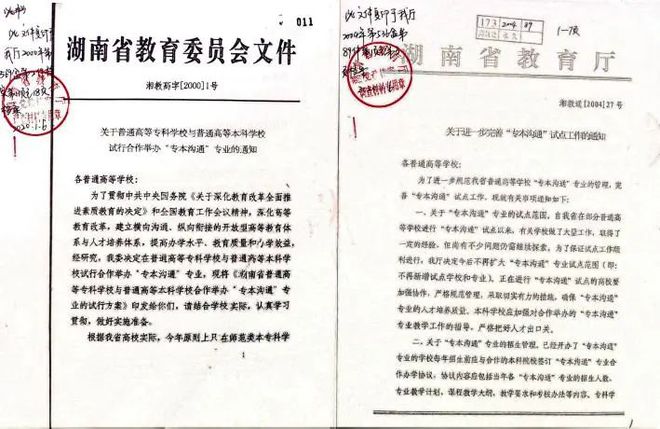 011
湖南省教育委员会文件
湘教高字[2000]1号
关于普通高等专科学校与普通高等本科学校
试行合作举办“专本沟通”专业的通知
各普通高等学校：
为了贯彻中共中央国务院《关于深化教育改革全面推
进素质教育的决定》和全国教育工作会议精神，深化高等
教育改革，建立横向沟通、纵向衔接的开放型高等教育体
系与人才培养体系，提高办学水平、教育质量和办学效益，
经研究，我委决定在普通高等专科学校与普通高等本科学
校试行合作举办“专本沟通”专业，现将《湖南省普通高
等专科学校与普通高等本科学校合作举办“专本沟通”专
业的试行方案》印发给你们，请结合学校实际，认真学习
贯彻，做好实施准备。
根据我省高校实际，今年原则上只在师范类本专科学
173 2004 89
1-7页
湖南省教育厅
湘教通[2004]27号
关于进一步完善“专本沟通”试点工作的通知
各普通高等学校：
为了进一步规范我省普通高等学校“专本沟通”专业的管理，完
善“专本沟通”试点工作，现就有关事项通知如下：
一、关于“专本沟通”专业的试点范围。自我省在部分普通高
等学校进行“专本沟通”试点以来，有关学校做了大量工作，取得了
一定的经验，但尚有不少问题仍需继续探索。为了保证试点工作顺
利进行，我厅决定今后不再扩大“专本沟通”专业试点范围（即：
不再新增试点学校和专业）。正在进行“专本沟通”试点的高校要
加强协作，严格规范管理，采取切实有力的措施，确保“专本沟通”
专业的人才培养质量。本科学校应加强对合作举办的“专本沟通”
专业教学工作的指导，严格把好人才出口关。
二、关于“专本沟通”专业的招生管理。已经开办了“专本沟通”
专业的学校每年招生前应与合作的本科院校签订“专本沟通”专业合
作办学协议，协议内容应包括当年各“专本沟通”专业的招生人数、
专业教学计划，课程教学大纲，教学要求和考核办法等内容。专科学